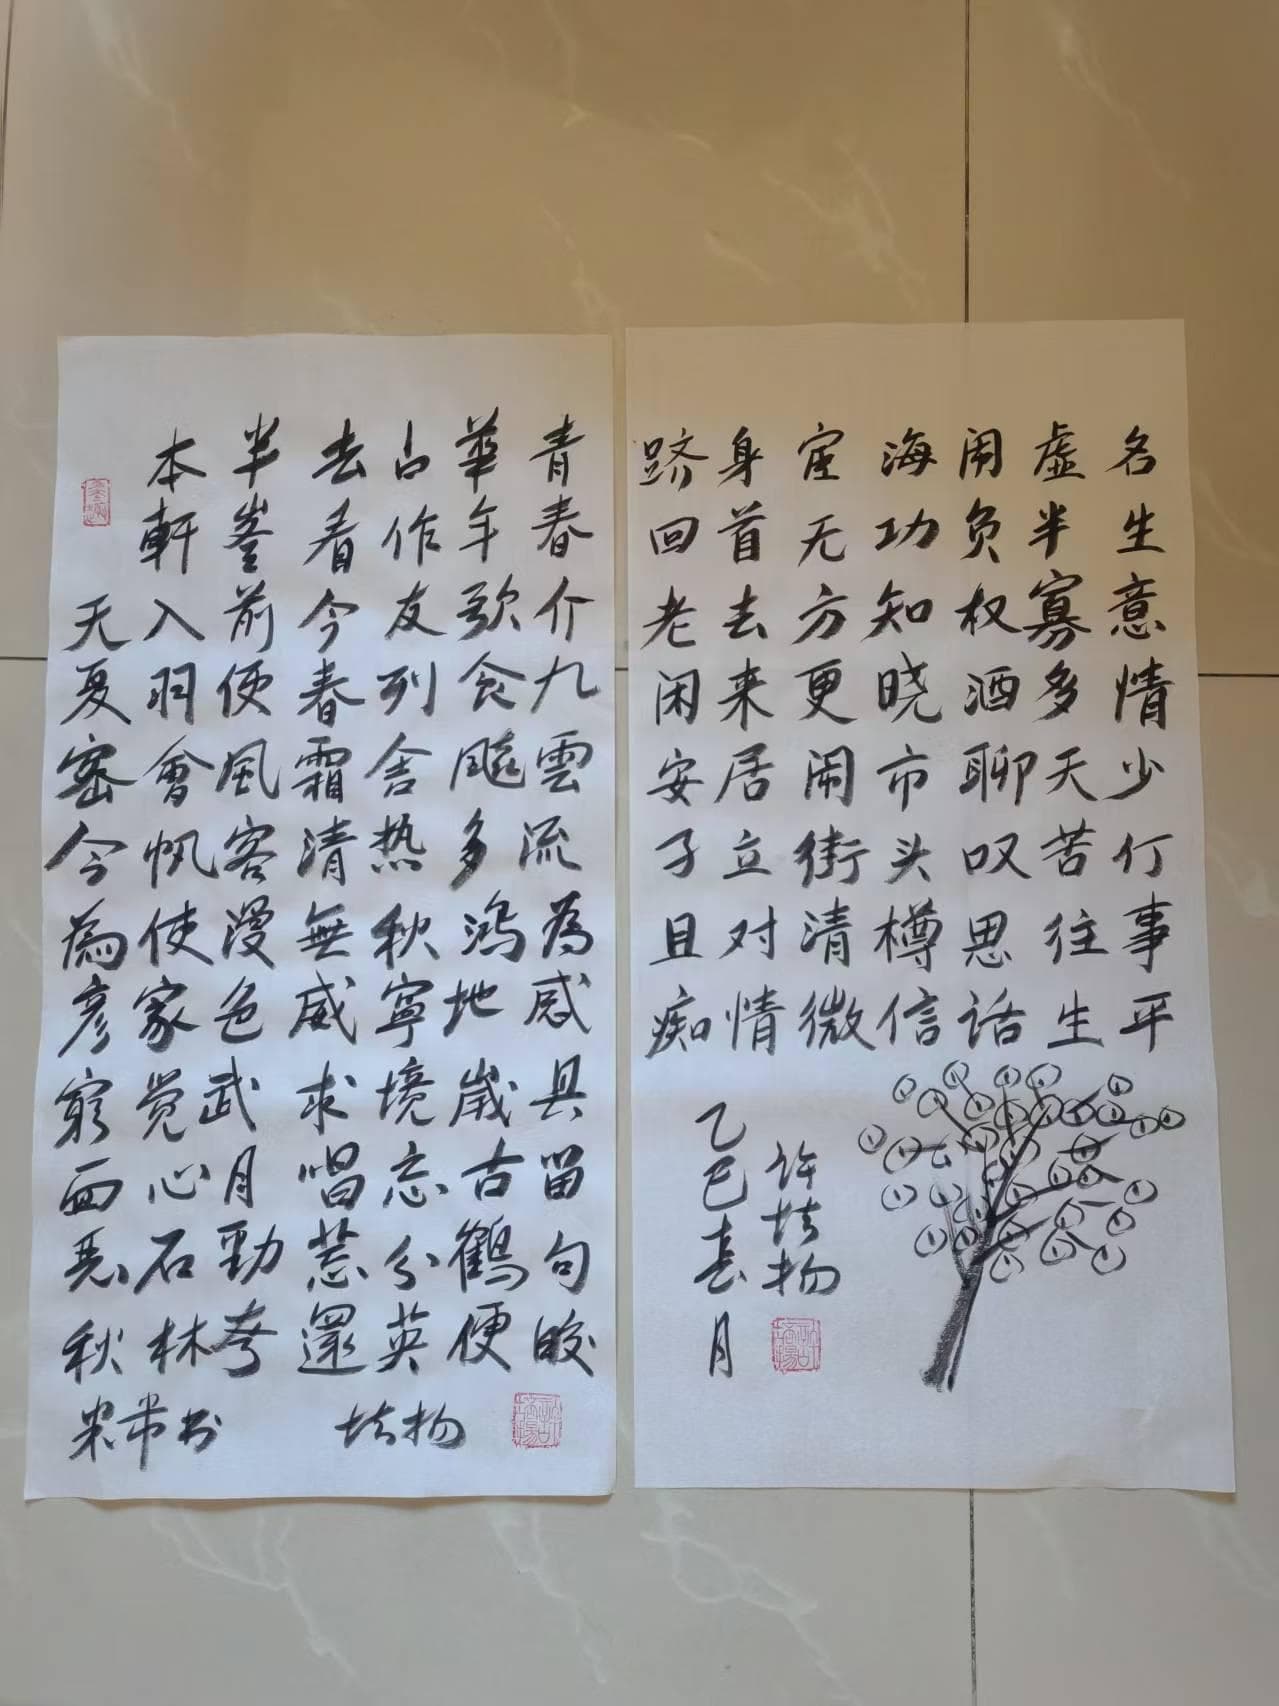 名生意情少仃事平
虚半寡多天苦往生
闲负权酒聊叹思话
海功知晓市头樽信
宦无方更闹街清微
身首去来居立对情
跻回老闲安子且痴
许 物
乙巳春月
青春介九雲流為感具留句皎
華年歌食飈多鴻地歲古鶴便
占作友列舍热秋寧境忘分英
去看今春霜清無威求唱慈還
半峯前便風容漫色武月勁夸
本軒入羽會帆使家覚心石林
天夏密今為彦窮面 秋
米芾书